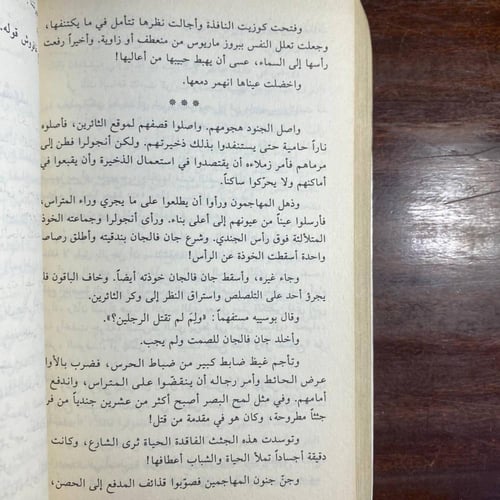 وفتحت كوزيت النافذة وأجالت نظرها تتأمل في ما يكتنفها،
وجعلت تعلل النفس ببروز ماريوس من منعطف أو زاوية. وأخيراً رفعت
رأسها إلى السماء، عسى أن يهبط حبيبها من أعاليها!
واخضلت عيناها انهمر دمعها.
* * *
واصل الجنود هجومهم. واصلوا قصفهم لموقع الثائرين، فأصلوه
ناراً حامية حتى يستنفدوا بذلك ذخيرتهم. ولكن أنجولرا فطن إلى
مرماهم فأمر زملاءه أن يقتصدوا في استعمال الذخيرة وأن يقبعوا في
أماكنهم ولا يحرّكوا ساكناً.
وذهل المهاجمون ورأوا أن يطلعوا على ما يجري وراء المتراس،
فأرسلوا عيناً من عيونهم إلى أعلى بناء. ورأى أنجولرا وجماعته
المتلألئة فوق رأس الجندي. وشرع جان فالجان بندقيته وأطلق
واحدة أسقطت الخوذة عن الرأس!
وجاء غيره، وأسقط جان فالجان خوذته أيضاً. وخاف الباقون
يجرؤ أحد على التلصلص واستراق النظر إلى وكر الثائرين.
وقال بوسييه مستفهماً: «ولِمَ لم تقتل الرجلين؟».
وأخلد جان فالجان للصمت ولم يجب.
وتأجم غيظ ضابط كبير من ضباط الحرس، فضرب
عرض الحائط وأمر رجاله أن ينقضّوا على المتراس، واندفع
أمامهم. وفي مثل لمح البصر أصبح أكثر من عشرين جندياً من
جثثاً مطروحة، وكان هو في مقدمة من قتل!
وتوسدت هذه الجثث الفاقدة الحياة ثرى الشارع، وكانت
دقيقة أجساداً تملأ الحياة والشباب أعطافها!
وجنّ جنون المهاجمين فصوّبوا قذائف المدفع إلى الحصن،